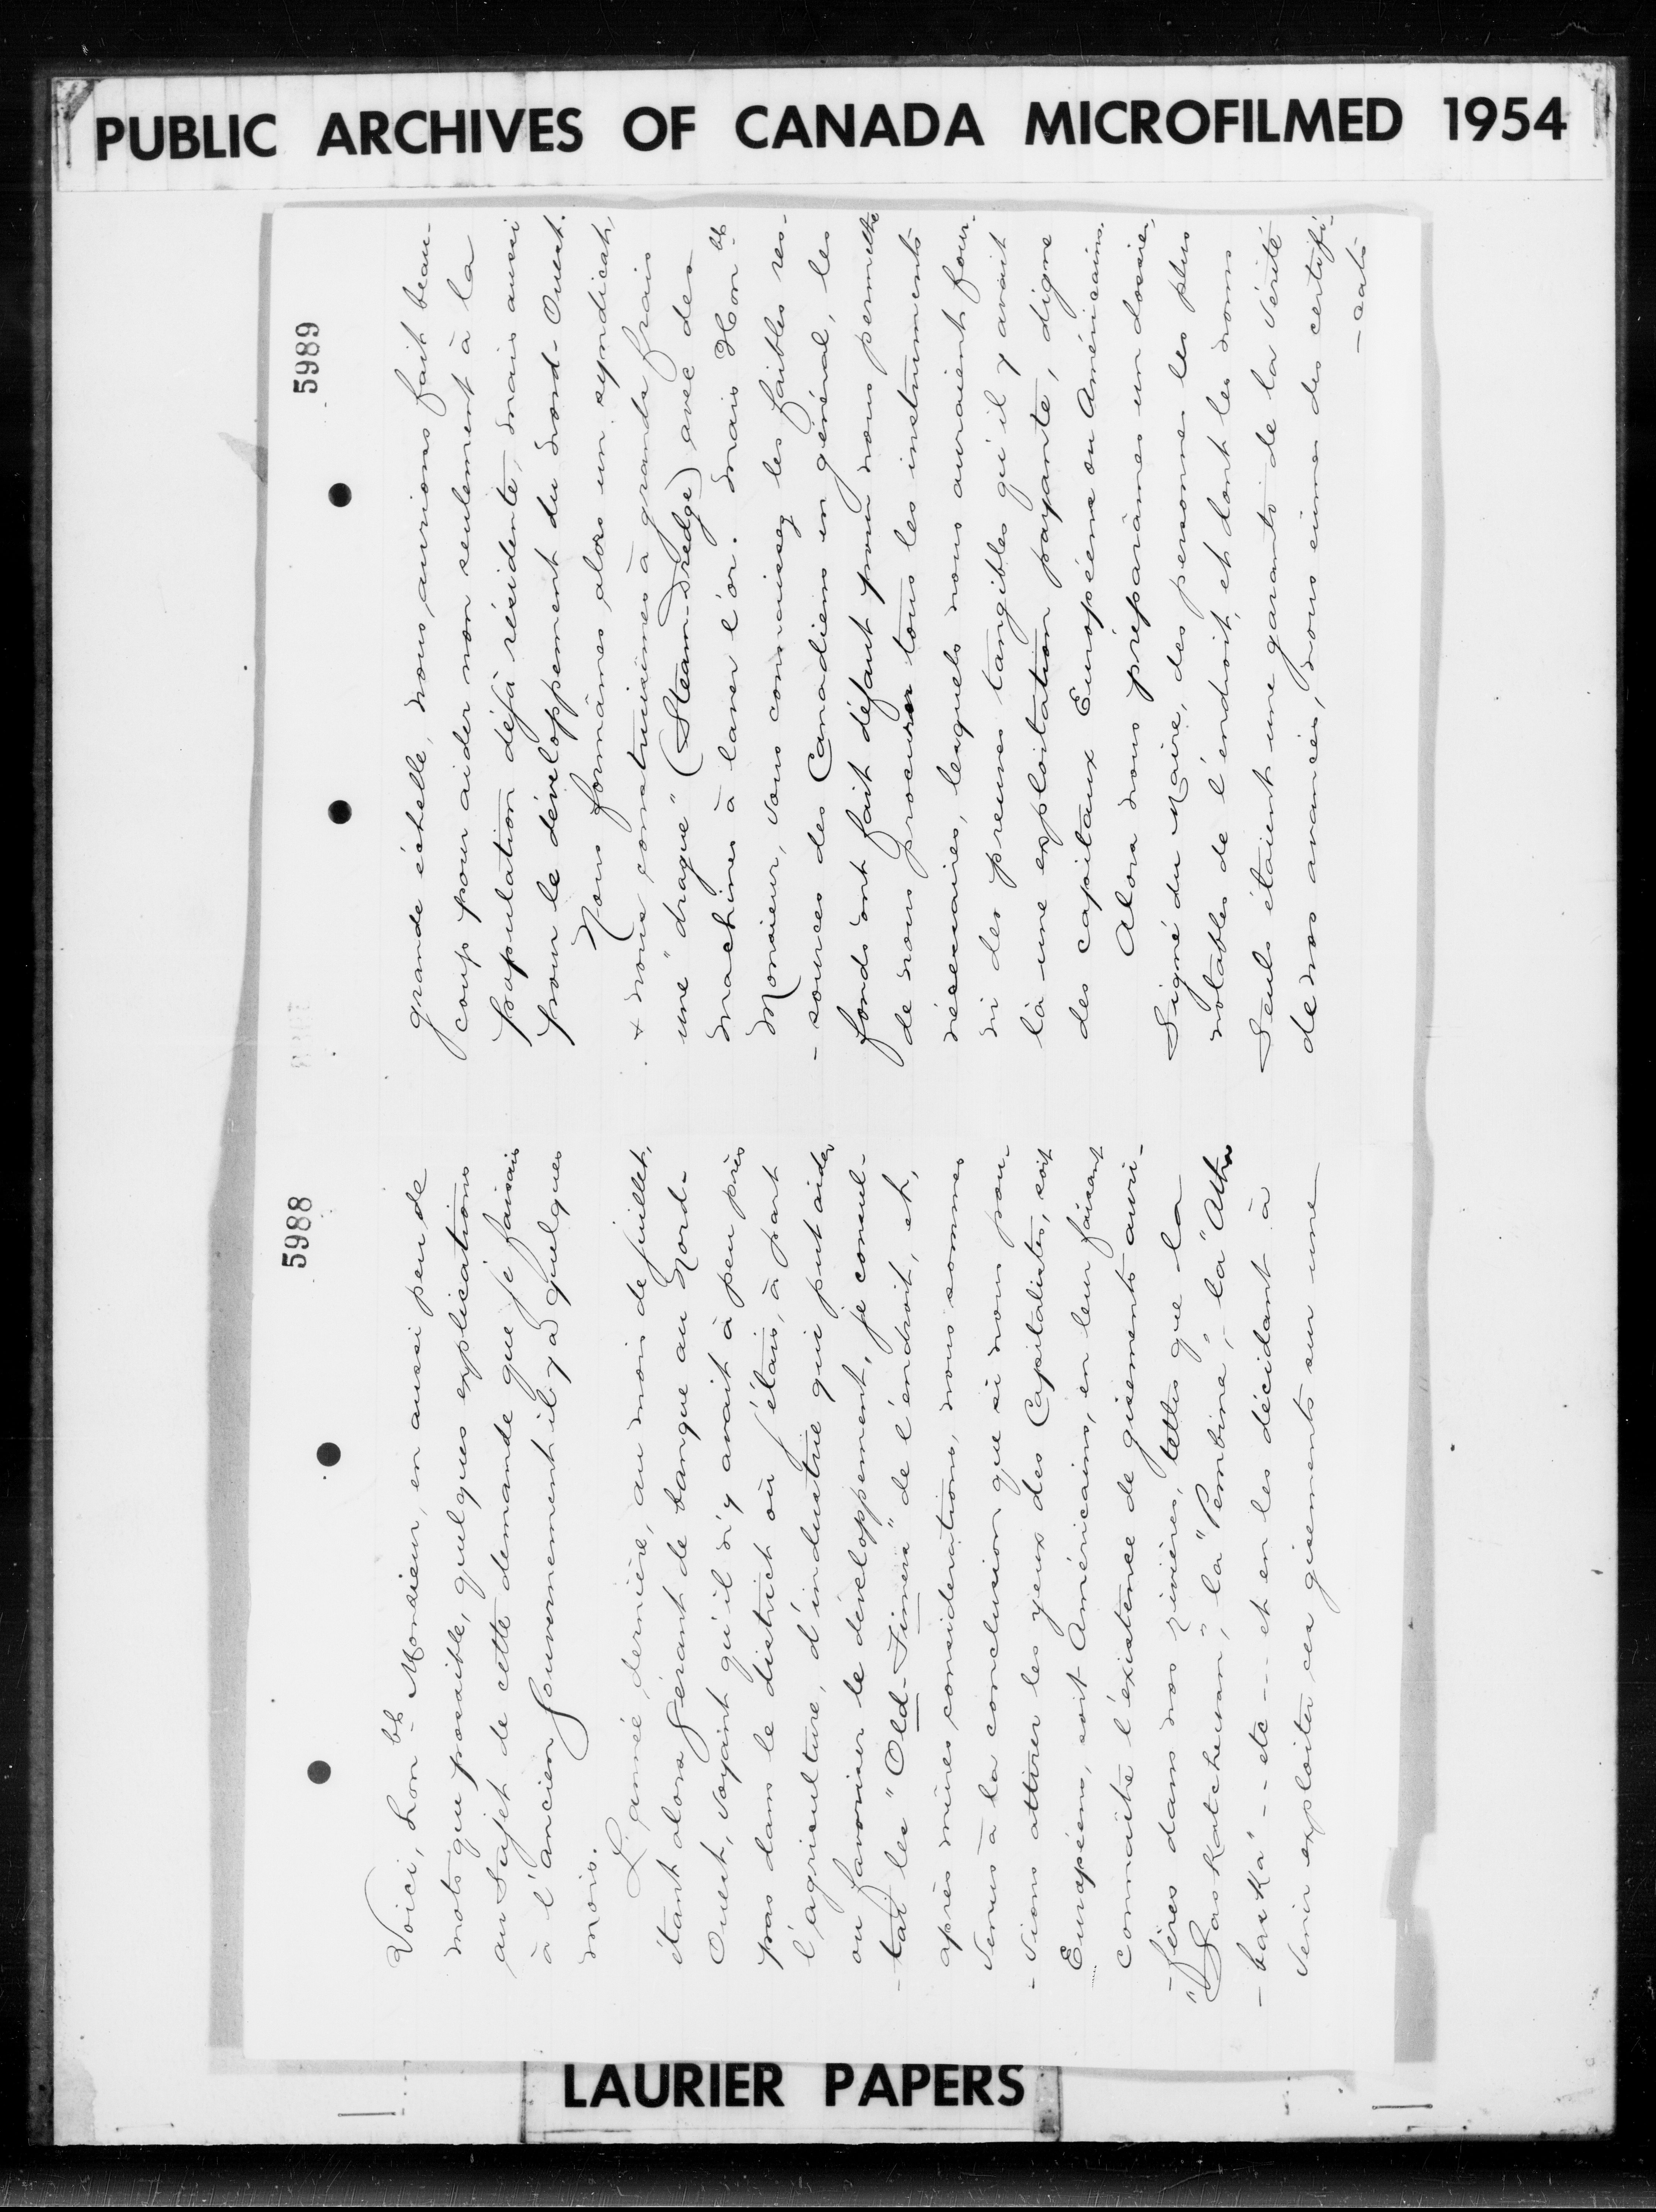 PUBLIC ARCHIVES OF CANADA MICROFILMED 1954
5988
Voici, Hon^ble Monsieur, en aussi peu de
mots que possible, quelques explications
au Sujet de cette demande que je faisais
à l'ancien Gouvernement il y a quelques
mois.
L'année dernière, au mois de juillet,
étant alors Gérant de banque au Nord-
Ouest, voyant qu'il n'y avait à peu près
pas dans le district où j'étais, à part
l'agriculture, d'industrie qui put aider
ou favoriser le développement, je consul-
-tai les "Old-Timers" de l'endroit, et,
après mûres considérations, nous sommes
venus à la conclusion que si nous pou-
-vions attirer les yeux des Capitalistes, soit
Européens, soit Américains, en leur faisant
connaître l'existence de gisements auri-
-fères dans nos rivières, telles que la
"Saskatchewan", la "Pembina", la "Atha
-baska" -- etc -- et en les décidant à
venir exploiter ces gisements sur une
5989
grande échelle, nous aurions fait beau-
coup pour aider non seulement à la
population déjà résidente, mais aussi
pour le développement du Nord-Ouest.
Nous formâmes alors un syndicat,
+ nous construisîmes à grands frais
une "drague" (Steam-Dredge) avec des
machines à laver l'or. Mais Hon^ble
Monsieur, vous connaissez les faibles res-
-sources des Canadiens en général, les
fonds ont fait défaut pour nous permettre
de nous procurer tous les instruments
nécessaires, lesquels nous auraient four-
ni des preuves tangibles qu'il y avait
là une exploitation payante, digne
des capitaux Européens ou Américains.
Alors nous préparâmes un dossier,
Signé du Maire, des personnes les plus
notables de l'endroit, et dont les noms
Seuls étaient une garantie de la vérité
de nos avancés, nous eûmes des certifi-
-cats
LAURIER PAPERS